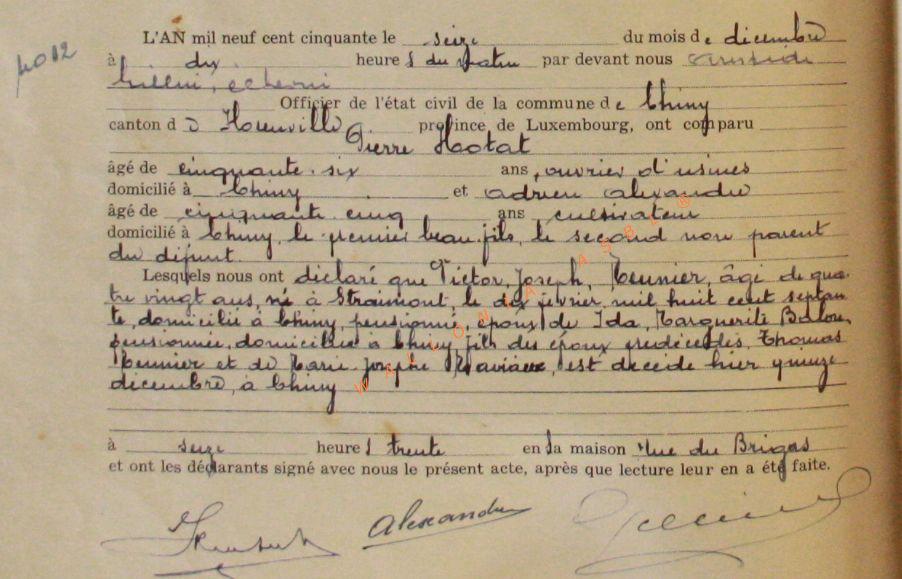 no 12
L'AN mil neuf cent cinquante le seize du mois de décembre
à dix heures du matin par devant nous
échevin
Officier de l'état civil de la commune de Chiny
canton d province de Luxembourg, ont comparu
Pierre Hotat
âgé de cinquante-six ans, ouvrier d'usines
domicilié à Chiny et Adrien Alexandre
âgé de cinquante cinq ans cultivateur
domicilié à Chiny, le premier beau-fils, le second non parent
du défunt.
Lesquels nous ont déclaré que Victor, Joseph, Meunier, âgé de qua-
tre vingt ans, né à Straimont, le dix février, mil huit cent septan-
te, domicilié à Chiny, pensionné, époux de Ida, Marguerite
pensionnée, domiciliée à Chiny fils des époux prédécédés, Thomas
Meunier et de Marie-Josephe est décédé hier quinze
décembre, à Chiny
à seize heures trente en sa maison rue du
et ont les déclarants signé avec nous le présent acte, après que lecture leur en a été faite.
Alexandre
WALLONIA ASBL ®